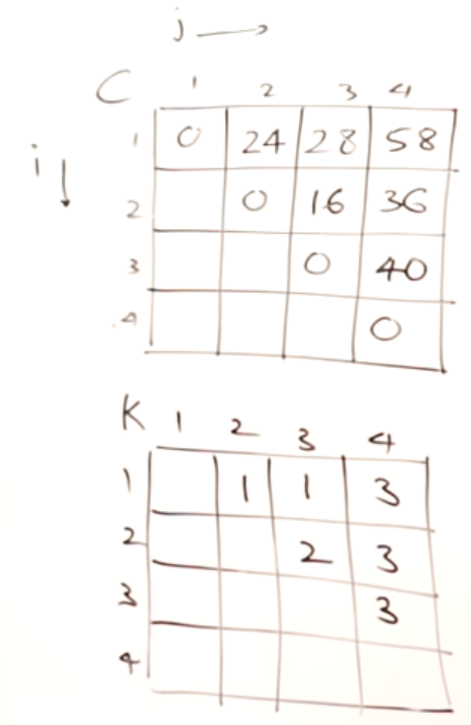 j →
C 1 2 3 4
i ↓
1 0 24 28 58
2 0 16 36
3 0 40
4 0
K 1 2 3 4
1 1 1 3
2 2 3
3 3
4